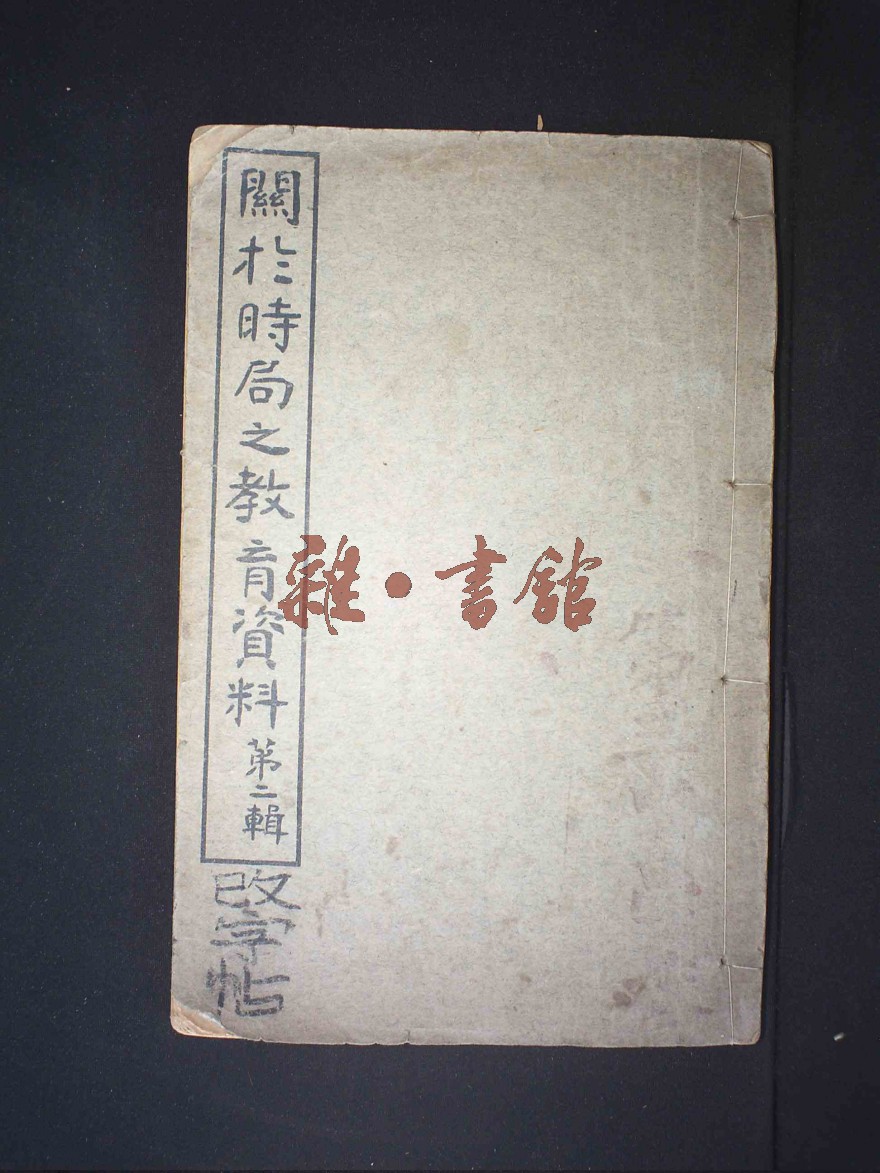 關於時局之教育資料 第二輯
改字帖
雜·書館